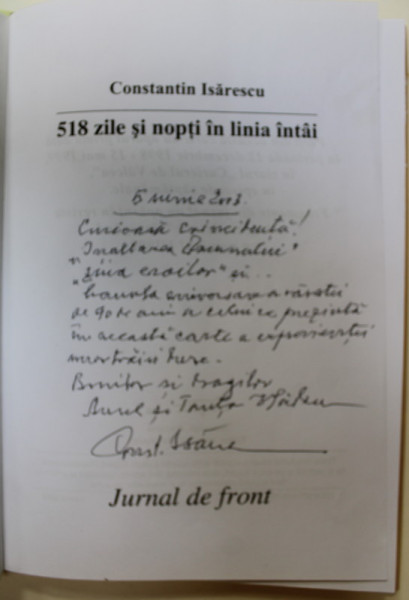 Constantin Isărescu
518 zile și nopți în linia întâi
5 iunie 2003
Curioasă coincidență!
Înălțarea Domnului"
"Ziua eroilor" și ..
aniversare a vârstei
de 90 de ani a celui ce prezintă
în această carte a experienței
Bunilor si dragilor
Aurel și Tanța
Const. Isăre
Jurnal de front